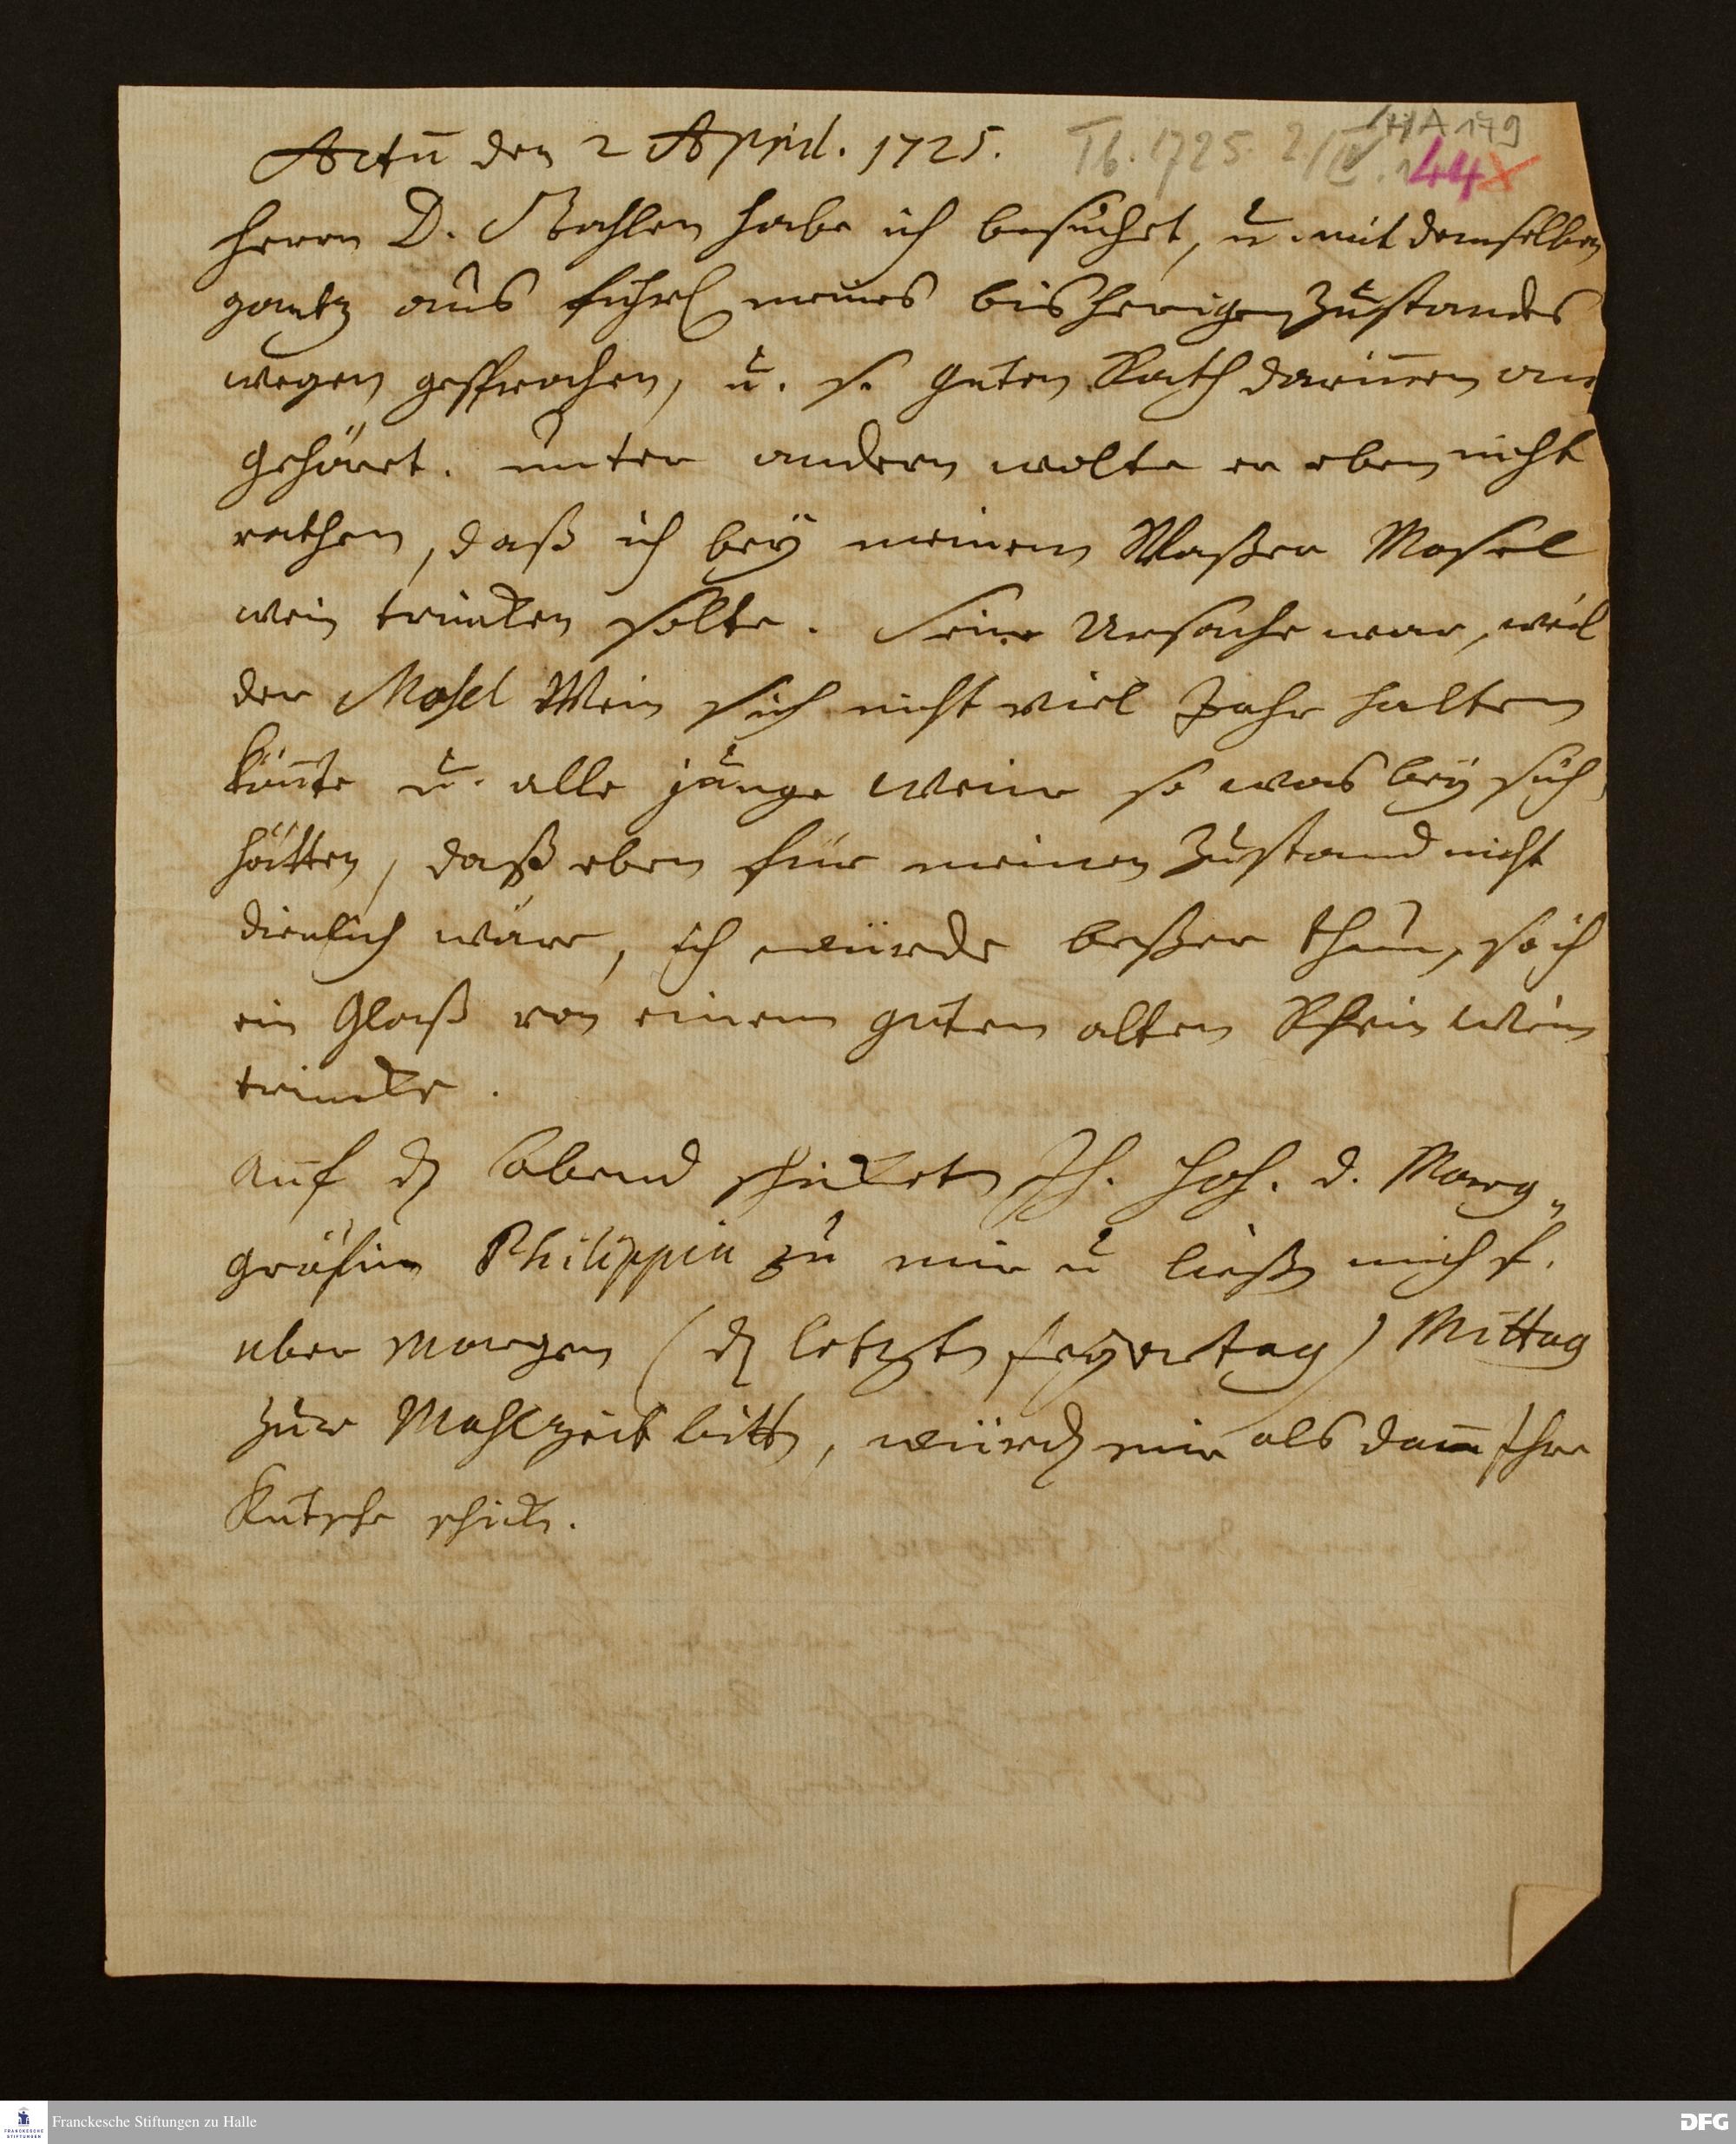 Actū den 2 April. 1725.
Tb. 1725. 2./IV.
HA 179
44
Herrn D. Stahlen habe ich besuchet, u. mit demselben
gantz aus führl meines bisherigen Zustandes
wegen gesprochen, u. s. guten Rath dariñen an
gehöret. unter andern wolte er eben nicht
rathen, daß ich bey meinem Waßer Mosel
wein trincken solte. Seine Ursache war, weil
der Mosel Wein sich nicht viel Jahr halten
köñte u. alle junge Weine so was bey sich
hätten, daß eben für meinen Zustand nicht
dienlich wäre, ich würde beßer thun, so ich
ein Glaß von einem guten alten Rhein Wein
trincke.
Auf dn Abend schicketn Ih. Hoh. d. Marg„
gräfin Philippin zu mir u ließn mich f.
uber morgen (dn letztn feyertag) Mittag
zur Mahlzeit bittn, würdn mir als dañ Ihre
Kutsche schickn.
Franckesche Stiftungen zu Halle
FRANCKESCHE
STIFTUNGEN
DFG